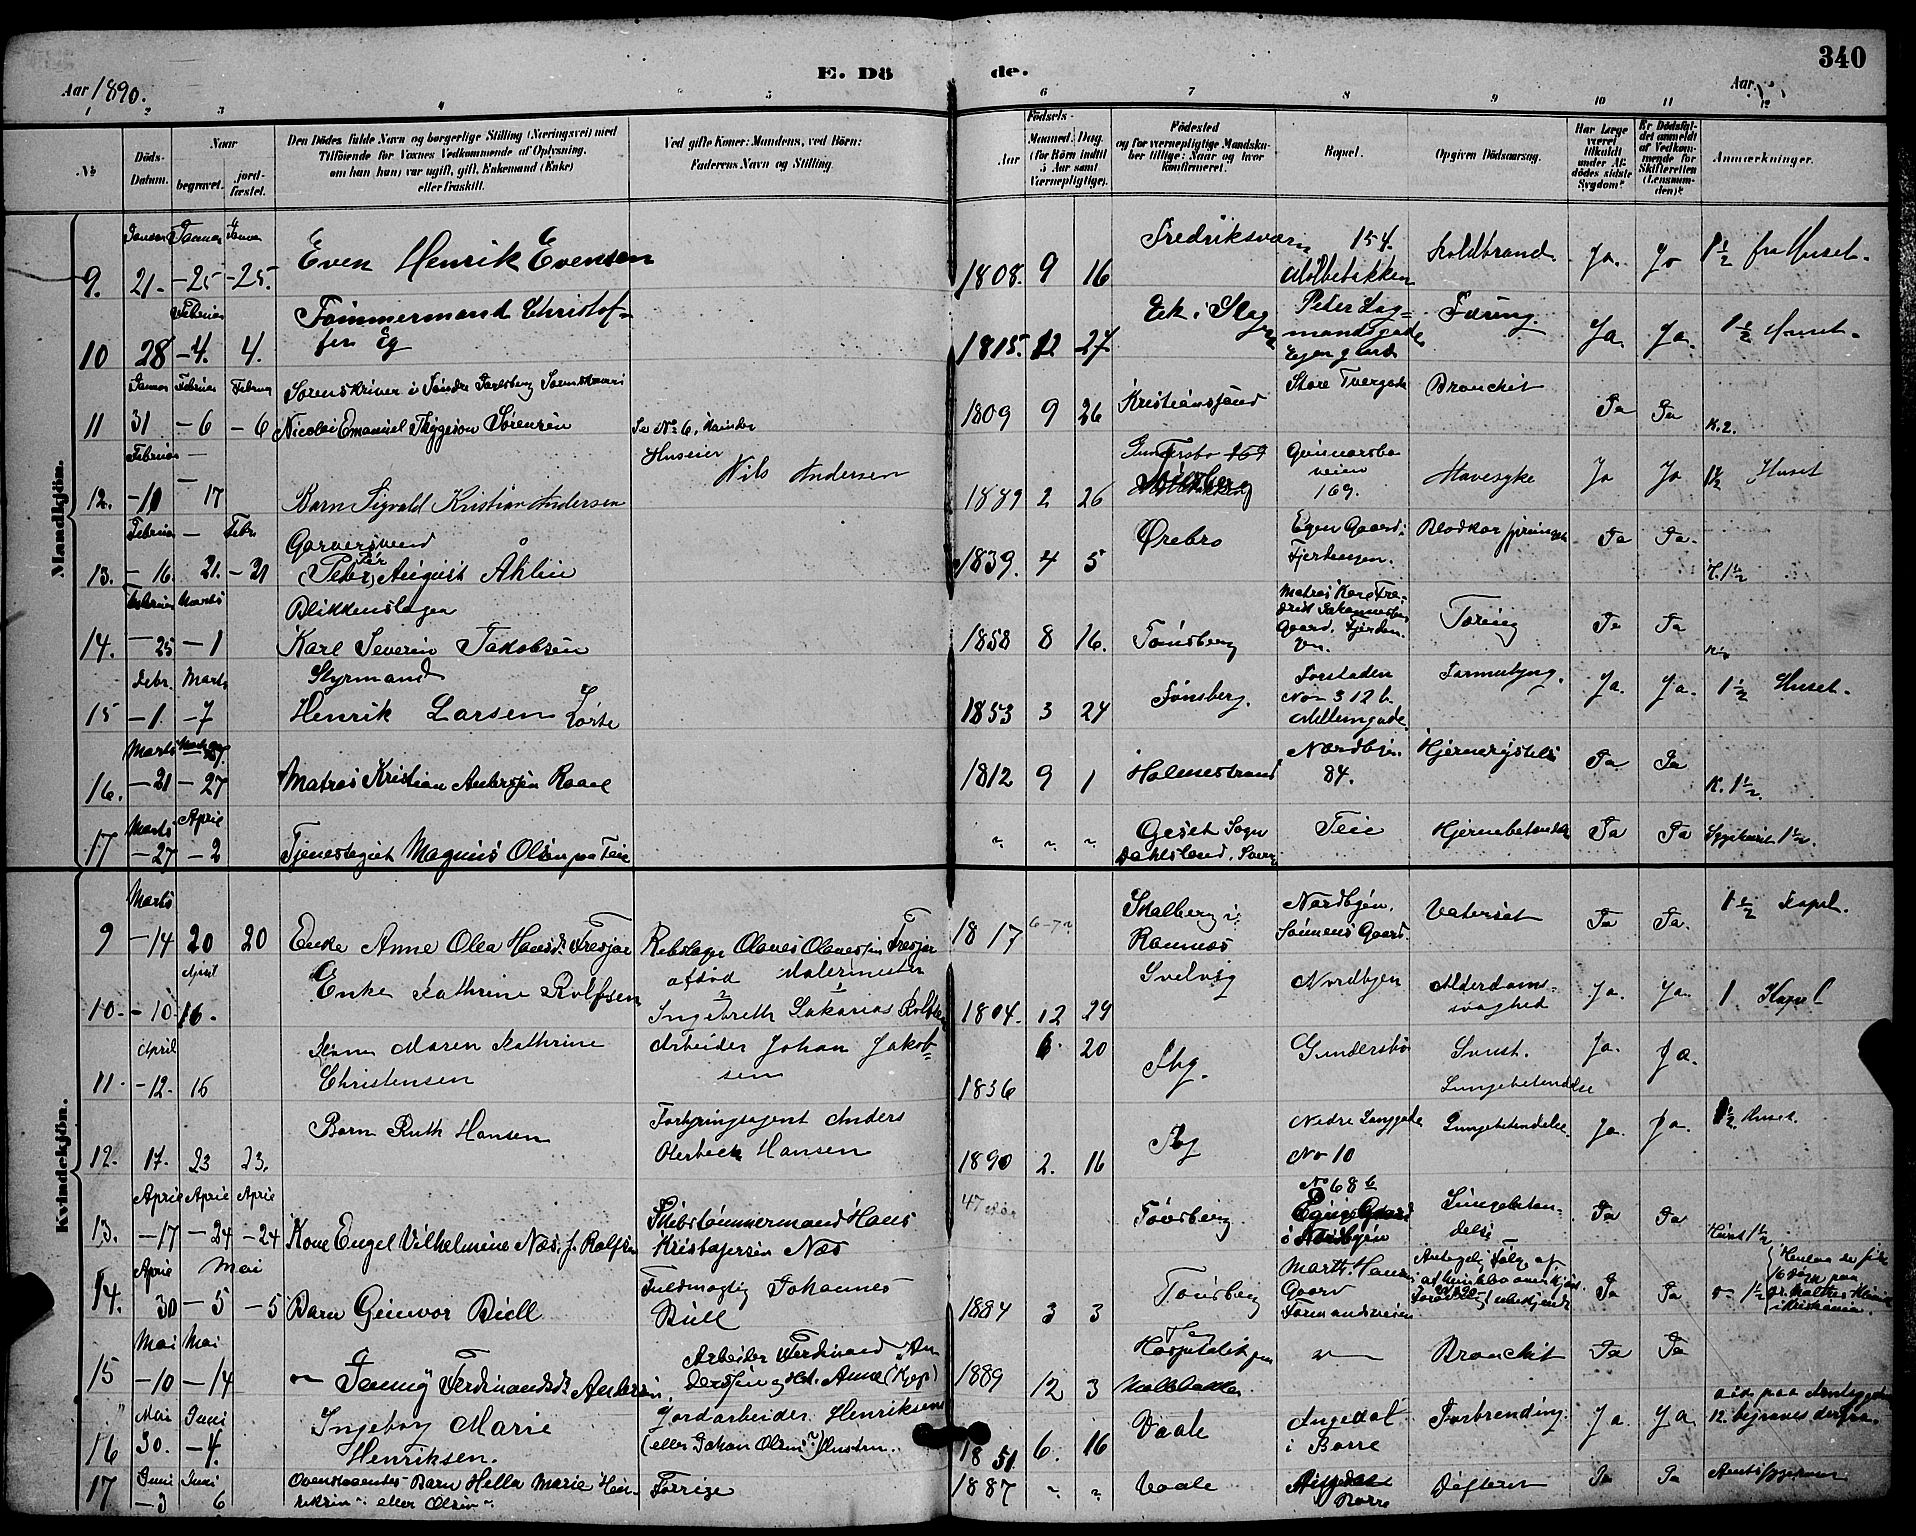 340
E. Dö de.
Aar 1890.
Aar
1 2 3 4 5 6 7 8 9 10 11 12
No
Döds-Datum.
Naar
begravet.
jord-fæstet.
Den Dödes fulde Navn og borgerlige Stilling (Næringsvei) med
Tilföiende for Voxnes Vedkommende af Oplysning,
om han (hun) var ugift, gift, Enkemand (Enke)
eller fraskilt.
Ved gifte Koner: Mandens, ved Börn:
Faderens Navn og Stilling.
Födsels-
Aar
Maaned. Dag.
(for Börn indtil
5 Aar samt
Værnepligtige).
Födested
og for værnepligtige Mandska-
ber tillige: Naar og hvor
konfirmeret.
Bopæl.
Opgiven Dödsaarsag.
Har Læge
været
tilkaldt
under Af-
dödes sidste
Sygdom?
Er Dödsfal-
det anmeldt
af Vedkom-
mende for
Skifteretten
(Lensman-
den)?
Anmærkninger.
Mandkjön.
9. Januar 21. Januar -25 Januar -25. Even Henrik Evensen 1808. 9 16 Fredriksværn 154. Møllebakken Koldbrand Ja. Ja 1½ fra Huset.
10 28 Februar -4. 4. Tømmermand Christof-
fer Eg 1815. 12 27 Ek i Slagn Peter Lag-
mandsgade
Egen gaard Tæring Ja. Ja. 1½ Huset.
11 Januar 31 Februar -6 Februar -6 Sorenskriver i Søndre Jarlsberg Sorenskriveri
Nicolai Emanuel Thygeson Sörensen 1809 9 26 Kristianssand Store Tvergade Bronchit Ja Ja K. 2.
Se No 6, Kvinder
12. Februar -10 17 Barn Sigvald Kristian Andersen Huseier
Nils Andersen 1889 2 26 Gundersbo 169
Tönsberg Gunnarsbo
veien
169. Mavesyke Ja Ja 1½ Huset
13. Februar -16. 21. Febr. -21 Garversvend
(Peter) Per August Åhlin 1839. 4 5 Ørebro Egen Gaard i
Fjerdingen. Blodkar sprunget Ja Ja. K. 1½
14. Februar -25 Marts -1 Blikkenslager
Karl Severin Jakobsen 1858 8 16. Tönsberg Matros Karl Fre-
drik Johannesens
Gaard, Fjerdin-
gen. Tæring Ja Ja
15 Febr. -1. Marts -7 Styrmand
Henrik Larsen Kørte 1853 3 24 Tønsberg. Forstaden
No 312 b
Møllegade Ja. Ja. 1½ Huset.
16. Marts -21 -27 Matros Kristian Andersen Raael 1812 9 1 Holmestrand Nordbyen
84. Hjernerystelse Ja Ja K. 1½.
17 Marts -27 April -2 Tjenestegut Magnus Olsen paa Teie " " " Geset Sogn
Dahlsland, Sverig Teie Hjernebetændelse Ja Ja Sygehuset 1½.
Kvindekjön.
9 Marts -14 20 20 Enke Anne Olea Hansd. Tresjar Rebslager Olaves Olavesen Tresjar
afdöd 1817 6-7 Skalberg i
Ramnes Nordbyen,
Sönnens Gaard. Vatersot Ja Ja. 1½ Kapel.
10. -10 April 16. Enke Kathrine Rolfsen Malermester
Ingebreth Sakarias Rolfsen 1804. 12 29 Svelvig Nordbyen Alderdoms-
svaghed Ja. Ja. 1 Kapel
11. April -12. 16 Kone Maren Kathrine
Christensen Arbeider Johan Jakob-
sen 1836 6. 20 Gundersbo
Lungebetændelse Ja. Ja.
12. 17. 23 23. Barn Ruth Hansen Forhyringsagent Anders
Hansen 1890 2. 16 Nedre Langgade
No 10 Lungebetændelse. Ja. Ja. 1½ Huset.
13. April -17 April -24 April -24 Kone Engel Vilhelmine Næs, f. Rolfsen Skibstømmermand Hans
Kristofersen Næs 47 Tönsberg. No 68 b
Egen Gaard
i Nordbyen Lungebetæn-
delse Ja Ja Huset 1½
14. April 30 Mai -5 -5 Barn Gunvor Büll Fuldmægtig Johannes
Büll 1884 3 3 Tönsberg Marth. Hansens
Gaard
Formandsveien Ja Ja 1½
i Kristiania.
15 Mai -10 Mai -14 Fanny Ferdinandsd. Andersen Arbeider Ferdinand An-
dersen og Anna 1889 12 3 Møllebakken Bronchit Ja Ja
16 Mai 30. Juni -4. Ingeborg Marie
Henriksen. Jordarbeider Henriksens
(eller Johan Olsens) Hustru. 1851 6. 16 Vaale Angedal
i Borre Forbrending Ja Ja. død paa Amtssygehus
12. begraves derfra.
17 Juni -3 Juni 6 Ovenstaaendes Barn Hella Marie Hen-
riksen eller Olsen Forrige 1887 " " Vaale Angedal
Borre Difterit Ja Ja Amtssygehuset